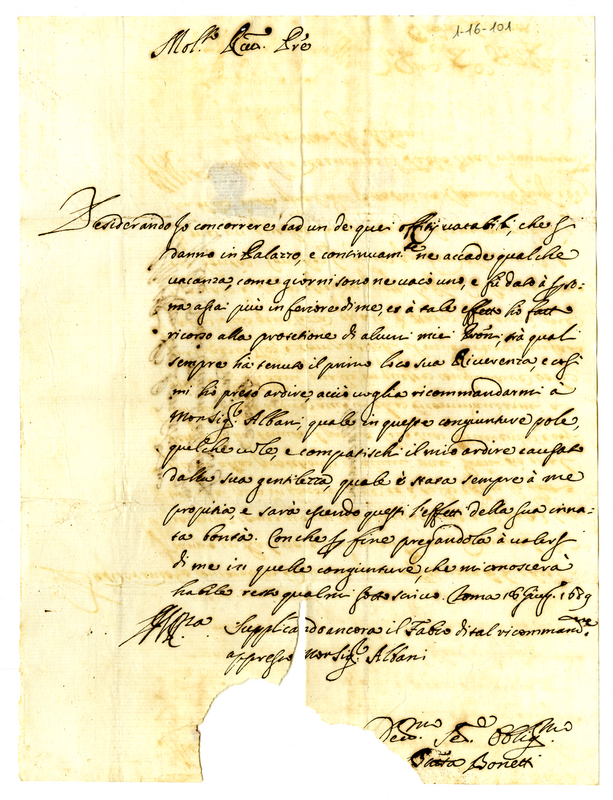 1-16-101
Mol.to Rev. Pre
Desiderando Io concorrere ad un de quei offitij vacabili, che si
danno in Palazzo, e continuam.te ne accade qualche
vacanza, come giorni sono ne vacò uno, e fù dato à perso-
na assai più inferiore di me, et à tale effetto ho fatto
ricorso alla protetione di alcuni miei Proni, trà quali
sempre hà tenuto il primo loco sua Riverenza, e così
mi ho preso ardire, acciò voglia ricommandarmi à
Monsig.r Albani, quale in queste congiunture pole,
quelche vole, e compatischi il mio ardire causato
dalla sua gentilezza, quale è stata sempre à me
propitia, e sarà essendo questi l'effetti della sua inna-
ta bontà. Con che per fine pregandola à valersi
di me in quelle congiunture, che mi conoscerà
habile resto qual mi sottoscrivo. Roma 16 Giug. 1689
Supplicando ancora il Fabio di tal ricommand.ne
appresso Monsig.r Albani
Dev.mo Se. Oblig.mo
Bonetti